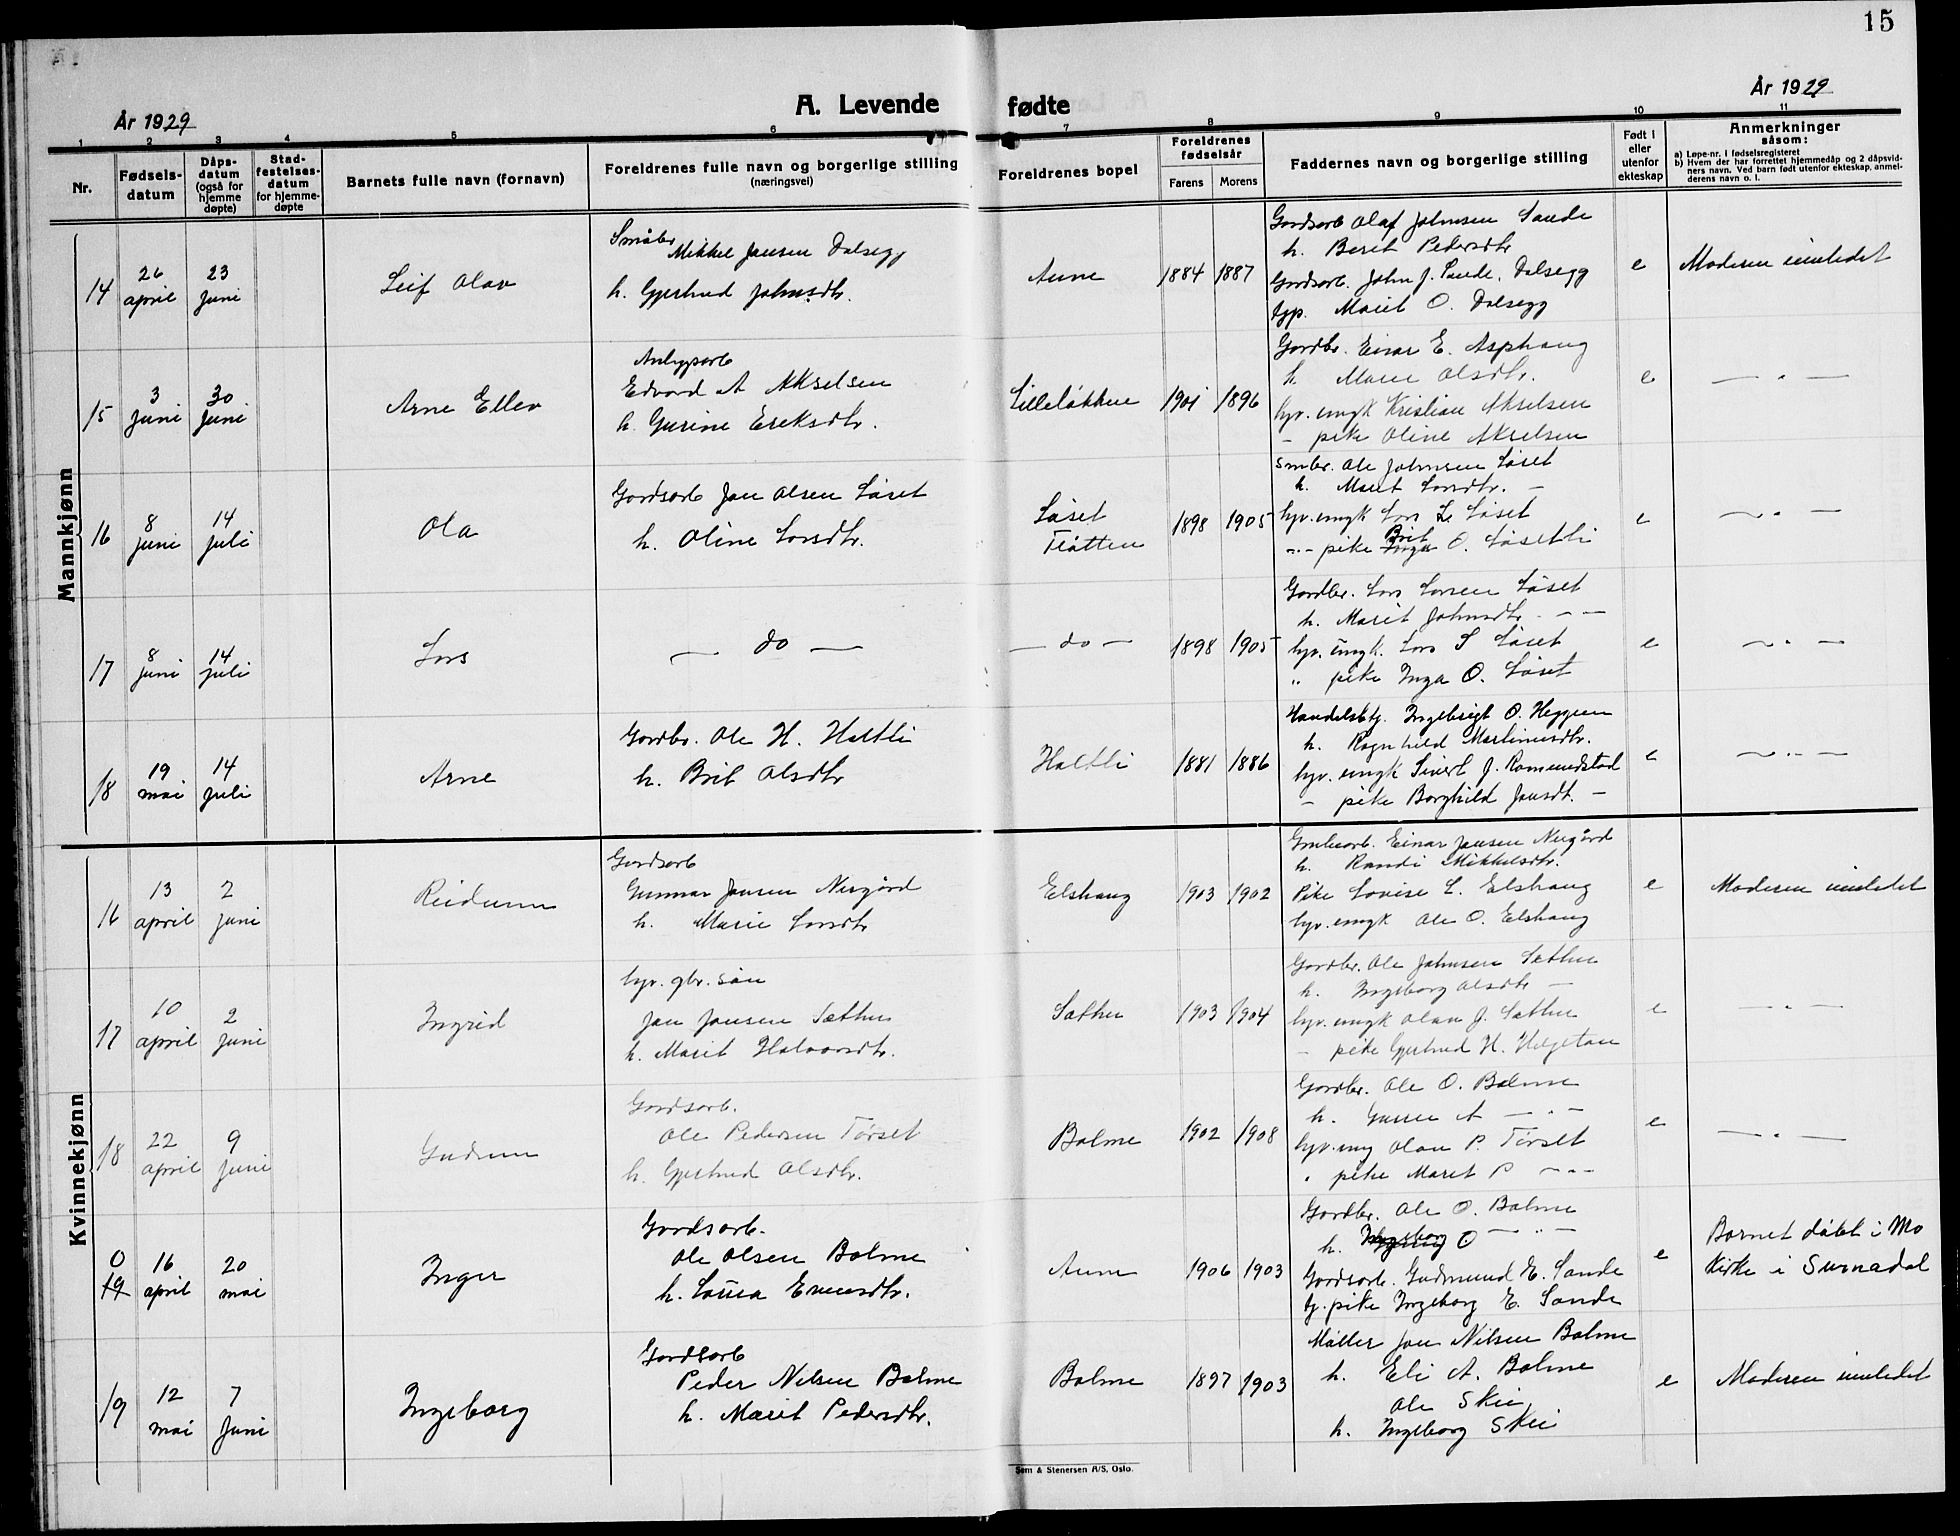 15
År 1929
A. Levende fødte
År 1929
1 2 3 4 5 6 7 8 9 10 11
Nr.
Fødsels-
datum
Dåps-
datum
(også for
hjemme
døpte)
Stad-
festelses-
datum
for hjemme-
døpte
Barnets fulle navn (fornavn)
Foreldrenes fulle navn og borgerlige stilling
(næringsvei)
Foreldrenes bopel
Foreldrenes
fødselsår
Farens
Morens
Faddernes navn og borgerlige stilling
Født i
eller
utenfor
ekteskap
Anmerkninger
såsom:
a) Løpe-nr. i fødselsregisteret
b) Hvem der har forrettet hjemmedåp og 2 dåpsvid-
ners navn. Ved barn født utenfor ekteskap, anmel-
derens navn o. l.
Mannkjønn
14
26
april
23
juni
Leif Olav
Småbr
Mikkel Jansen Dalsegg
h. Gjertrud Johnsdtr.
Aune
1884
1887
Gardsarb Olaf Johnsen Sande
h. Berit Pedersdtr
Gardsarb. John J. Sande, Dalsegg
Marit O. Dalsegg
e
Moderen innledet
15
3
juni
30
juni
Arne Ellev
Anlegsarb
Edvard A Akselsen
h. Gurine Ereksdtr.
Lilleløkken
1901
1896
Gardbr. Einar E. Asphaug
h. Marie Olsdtr.
hjv. ungk Kristian Akselsen
– pike Oline Akselsen
e
— " —
16
8
juni
14
juli
Ola
Gardsarb Jan Olsen Løset
h. Oline Larsdtr.
Løset
Fløtten
1898
1905
Smbr. Ole Johnsen Løset
h. Marit Larsdtr. –
hjv. ungk Lars L Løset
Brit
-"- pike Inga O. Løsetli
e
— " —
17
8
juni
14
juli
Lars
— do —
— do —
1898
1905
Gardbr. Lars Larsen Løset
h. Marit Johnsdtr. – –
hjv. ungk. Lars S Løset
" pike Inga O. Løset
e
— " —
18
19
mai
14
juli
Arne
Gardbr. Ole H. Holtli
h. Brit Olsdtr
Holtli
1881
1886
Handelsbtj. Ingebrigt O. Heggem
h. Ragnhild Martinusdtr.
hjv. ungk Sivert J. Romundstad
– pike Borghild Jansdt. –
e
— " —
Kvinnekjønn
16
13
april
2
juni
Reidunn
Gardsarb
Gunnar Jansen Nergård
h. Marie Larsdtr
Elshaug
1903
1902
Grubearb. Einar Jansen Nergård
h. Randi Mikkelsdtr.
Pike Lovise L. Elshaug
hjv. ungk Ole O. Elshaug
e
Moderen innledet
17
10
april
2
juni
Ingrid
hjv. gbr. søn
Jan Jansen Sæther
h. Marit Halvorsdtr.
Sæther
1903
1904
Gardbr. Ole Johnsen Sæther
h. Ingeborg Olsdtr –
hjv. ungk Olav J. Sæther
– pike Gjertrud H. Helgetun
e
— " —
18
22
april
9
juni
Gudrun
Gardsarb.
Ole Pedersen Tørset
h. Gjertrud Olsdtr.
Bolme
1902
1908
Gardbr. Ole O. Bolme
h. Guren A — " —
hjv. ung Olav P. Tørset
" pike Maret P – " –
e
— " —
0
19
16
april
20
mai
Inger
Gardsarb.
Ole Olsen Bolme
h. Laura Evensdtr.
Aune
1906
1903
Gardbr. Ole O. Bolme
h. Ingeborg O — " —
Gardsarb. Gudmund E. Sande
tj. pike Ingeborg E. Sande
e
Barnet døbt i Mo
Kirke i Surnadal
19
12
mai
7
juni
Ingeborg
Gardsarb
Peder Nilsen Bolme
h. Marit Pedersdtr.
Bolme
1897
1903
Møller Jon Nilsen Bolme
h. Eli A. Bolme
Ole Skei
h. Ingeborg Skei
e
Moderen innledet
Sem & Stenersen A/S, Oslo.